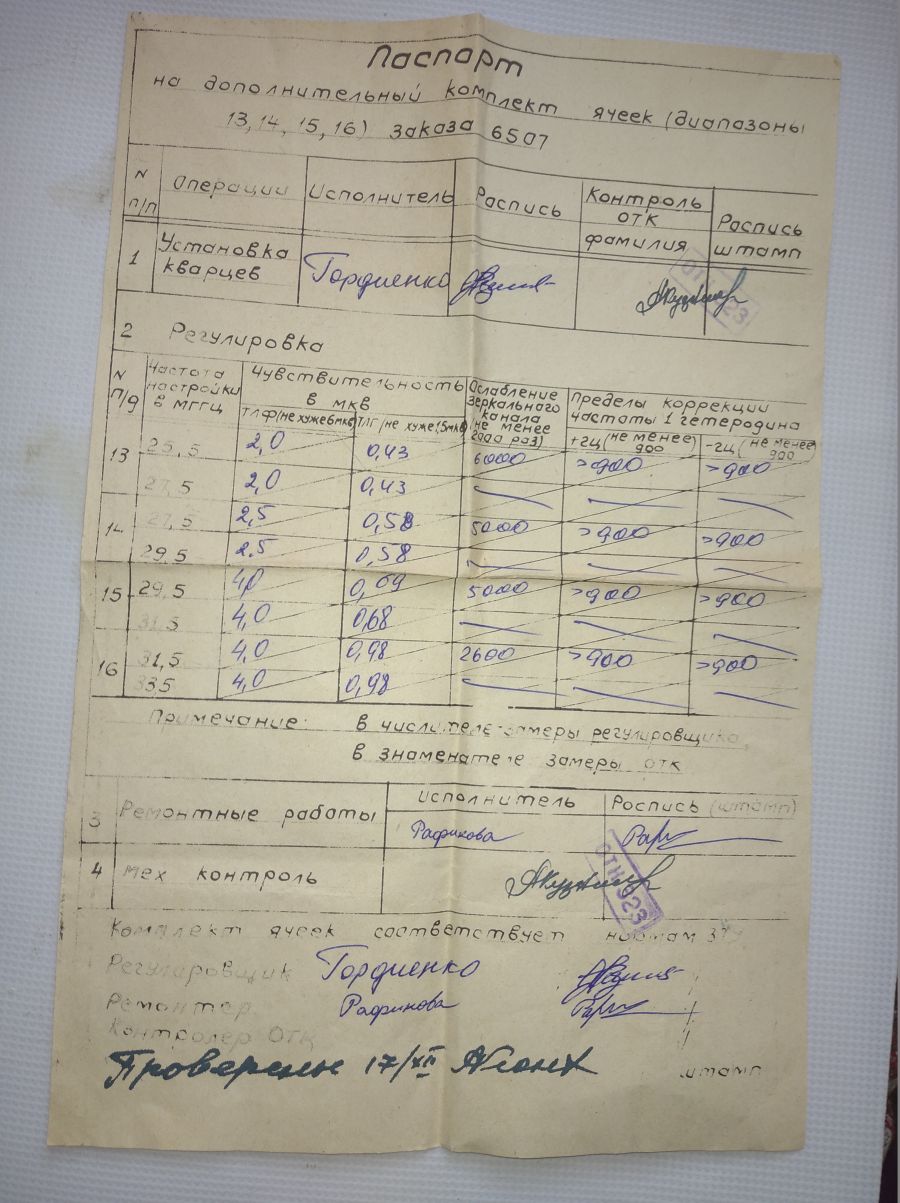 Паспорт
на дополнительный комплект ячеек (диапазоны
13, 14, 15, 16) заказа 6507
N п/п Операции Исполнитель Распись Контроль ОТК фамилия Распись штамп
1 Установка кварцев Гордиенко
ОТК 923
2 Регулировка
N п/д Частота настройки в МГГЦ Чувствительность в мкв Ослабление зеркального канала (не менее 2000 раз) Пределы коррекции частоты 1 гетеродина
ТЛФ (не хуже 6мкв) ТЛГ (не хуже 1,5мкв) +гц (не менее 900) -гц (не менее 900)
13 25,5 2,0 0,43 6000 >900 >900
27,5 2,0 0,43
14 27,5 2,5 0,58 5000 >900 >900
29,5 2,5 0,58
15 29,5 4,0 0,69 5000 >900 >900
31,5 4,0 0,68
16 31,5 4,0 0,98 2600 >900 >900
33,5 4,0 0,98
Примечание: в числителе замеры регулировщика,
в знаменателе замеры ОТК
3 Ремонтные работы Исполнитель Роспись (штамп)
Рафикова
4 мех контроль
ОТК 923
Комплект ячеек соответствует нормам
Регулировщик Гордиенко
Ремонтер Рафикова
Контролер ОТК
Проверены 17/XII
штамп